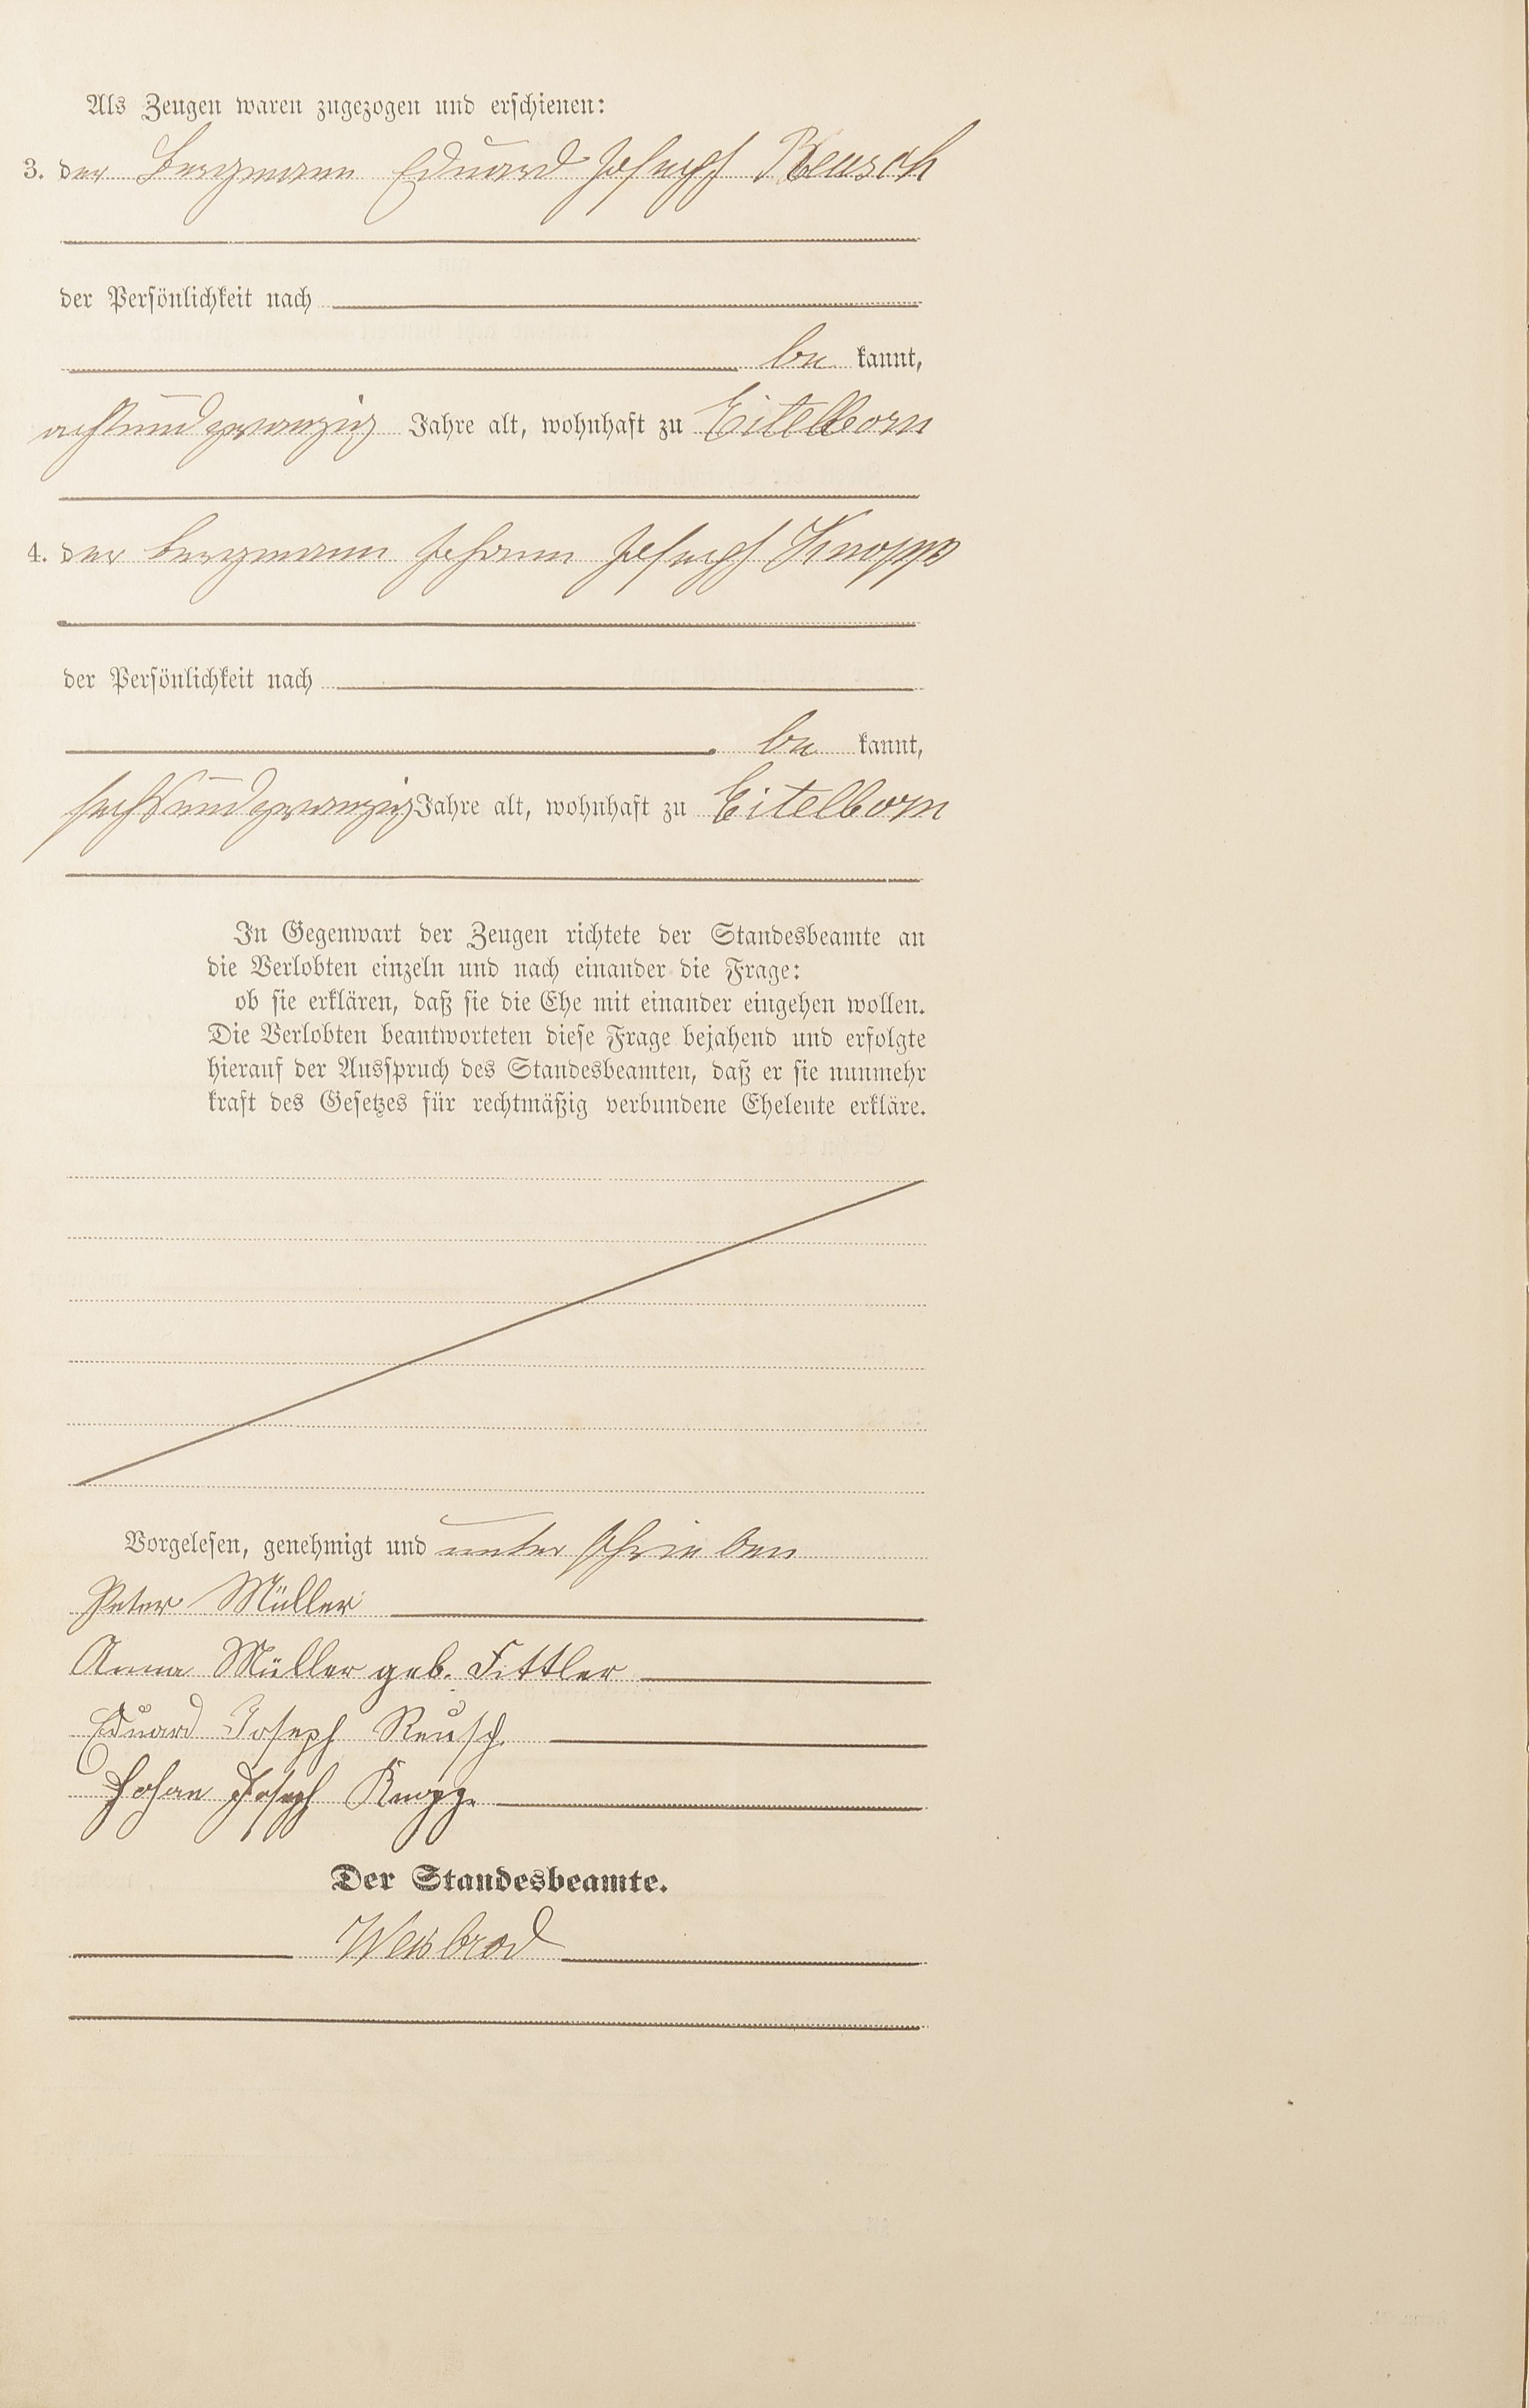 Als Zeugen waren zugezogen und erschienen:
3. der Bergmann Eduard Joseph Reusch
der Persönlichkeit nach
be kannt,
achtundzwanzig Jahre alt, wohnhaft zu Eitelborn
4. der Bergmann Johann Joseph Knopp
der Persönlichkeit nach
be kannt,
sechsundzwanzig Jahre alt, wohnhaft zu Eitelborn
In Gegenwart der Zeugen richtete der Standesbeamte an
die Verlobten einzeln und nach einander die Frage:
ob sie erklären, daß sie die Ehe mit einander eingehen wollen.
Die Verlobten beantworteten diese Frage bejahend und erfolgte
hierauf der Ausspruch des Standesbeamten, daß er sie nunmehr
kraft des Gesetzes für rechtmäßig verbundene Eheleute erkläre.
Vorgelesen, genehmigt und unterschrieben
Peter Müller
Anna Müller geb. Fittler
Eduard Joseph Reusch.
Johan Joseph Knopp.
Der Standesbeamte.
Weisbrod